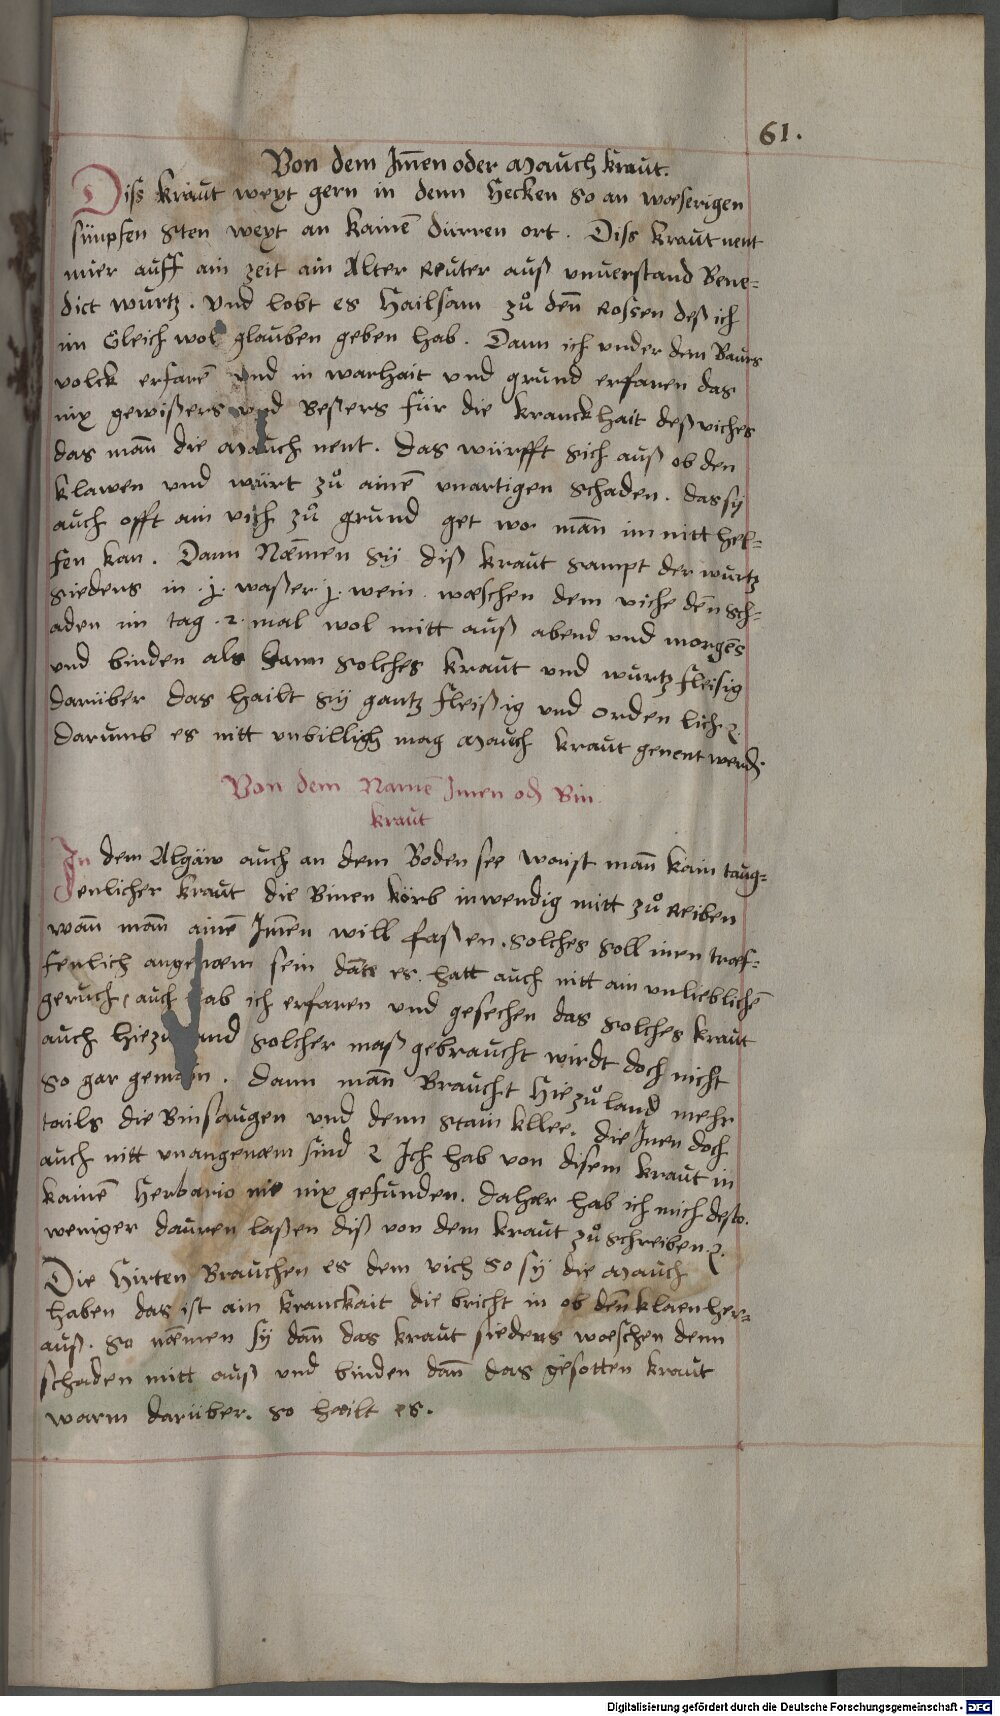 61.
Von dem Im̄en oder Mauch kraut.
Diss kraut wext gern in denn Hecken so an wæserigen
sünpfen sten wext an kainē dürren ort. Diss kraut nent
mier auff ain zeit ain Alter Reuter auß unuerstand Bene=
dict wurtz. Vnd lobt es Hailsam zů deñ Rossen deß ich
im Gleich wol glauben geben hab. Dann ich under dem Baurs
volck erfarē vnd in warhait vnd grund erfaren das
nix gewißers vnd Beßers für die kranckhait deß viches
das mañ die Mauch nent. das würfft sich auß ob den
klawen vnd würt zů ainē vnartigen schaden. das sÿ
auch offt ain vich zů grund get wo mañ im nitt hel=
fen kan. Dann Næmen sÿ diß kraut sampt der wurtz
siedens in .j. waßer j. wein. wæschen dem viche deñ sch=
aden im tag .2. mal wol mitt auß abend vnd morgēs
vnd binden als dann solches kraut vnd wurtz fleisig
darüber das hailt sÿ gantz fleißig vnd ordenlich ꝛ.
Darumb es nitt vnbillich mag Mauch kraut genent werdē.
Von dem Namē Imen od Bin
kraut
In dem Algäw auch an dem Bodensee waist mañ kain taug=
denlicher kraut die Binen körb inwendig mitt zů Reiben
wañ mañ ainē Im̄en will faßen. solches soll inen træf=
fenlich angenæm sein dañ es hatt auch nitt ain vnlieblichē
geruch, auch hab ich erfaren vnd gesechen das solches kraut
auch hiezu land solcher maß gebraucht wirdt doch nicht
so gar gemain. dann mañ Braucht Hiezů land mehr
tails die Binsaugen vnd denn stain kllee. die Inen doch
auch nitt vnangenæm sind ꝛ Ich hab von disem kraut in
kainē Herbario nie nix gefunden. dahær hab ich mich desto.
weniger dauren laßen diß von dem kraut zů schreiben ꝛ.
Die Hirten Brauchen es dem vich so sÿ die Mauch
haben das ist ain kranckait die bricht in ob deñ klaen her=
auß. so næmen sÿ dañ das kraut siedens wæschen denn
schaden mitt auß vnd binden dañ das gesotten kraut
warm darüber. so hailt es.
Digitalisierung gefördert durch die Deutsche Forschungsgemeinschaft - DFG